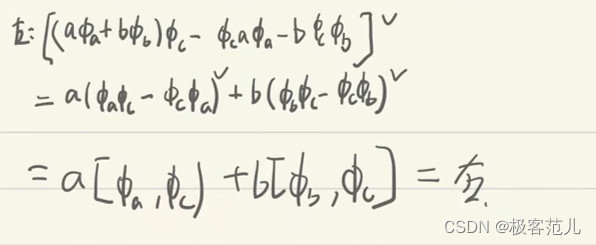 左: [(aϕₐ+bϕ_b)ϕ_c - ϕ_c aϕₐ - bϕ_cϕ_b]^∨
= a(ϕₐϕ_c - ϕ_cϕₐ)^∨ + b(ϕ_bϕ_c - ϕ_cϕ_b)^∨
= a[ϕₐ,ϕ_c) + b[ϕ_b,ϕ_c] = 右.
CSDN @极客范儿